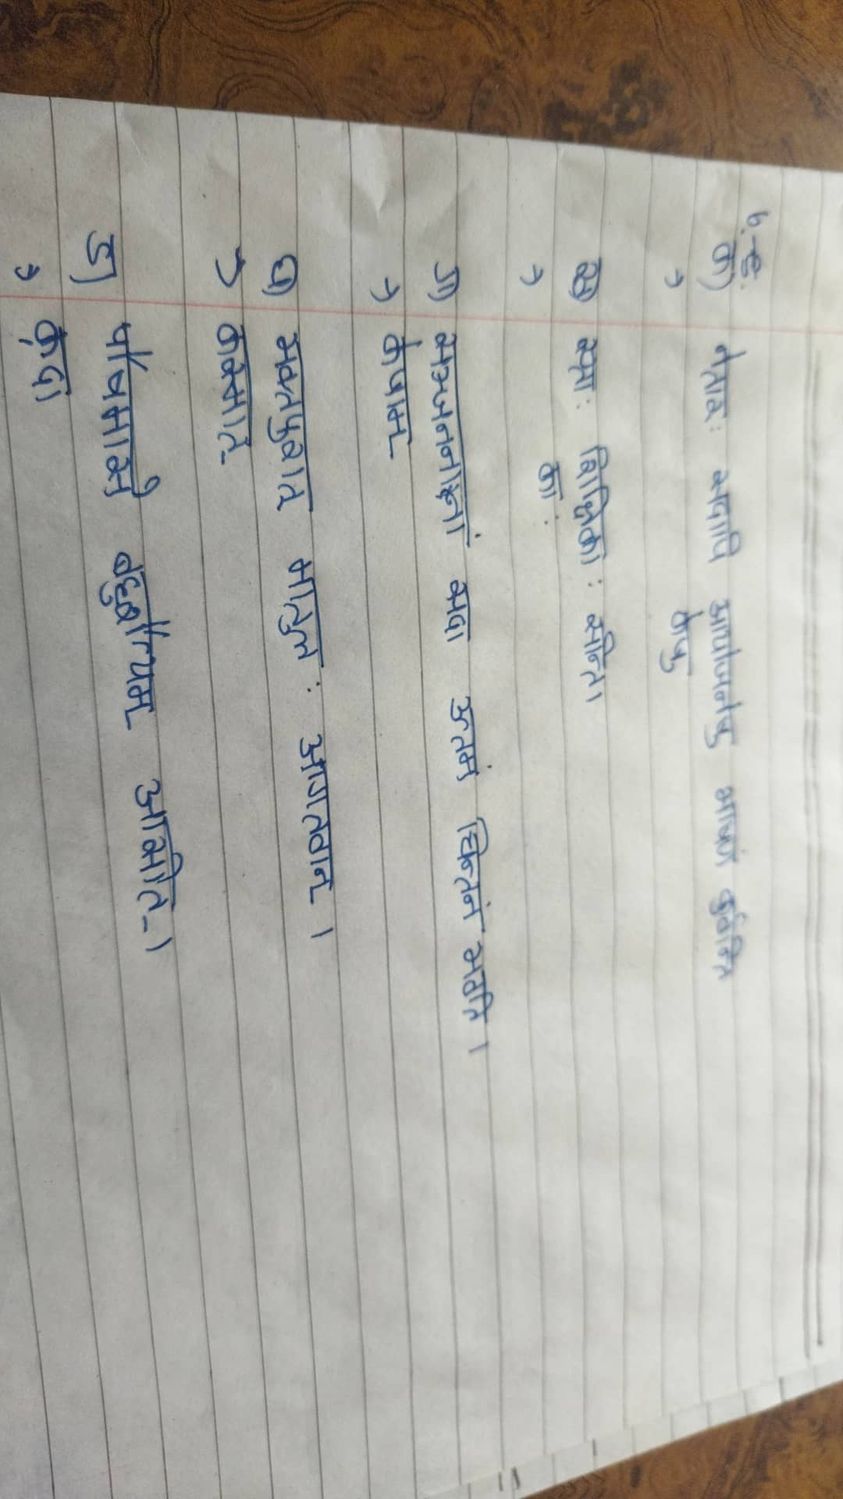 क) नेतारः सदापि आयोजनेषु भाषणं कुर्वन्ति
→ केषु
ख) रमाः शिक्षिकाः सन्ति।
→ काः
ग) सज्जनानां सदा उत्तमं चिन्तनं भवति।
→ केषाम्
घ) भक्तपुरात् मातुलः आगतवान्।
→ कस्मात्
ङ) पौषमासे बहुशैत्यम् आसीत्।
→ कदा